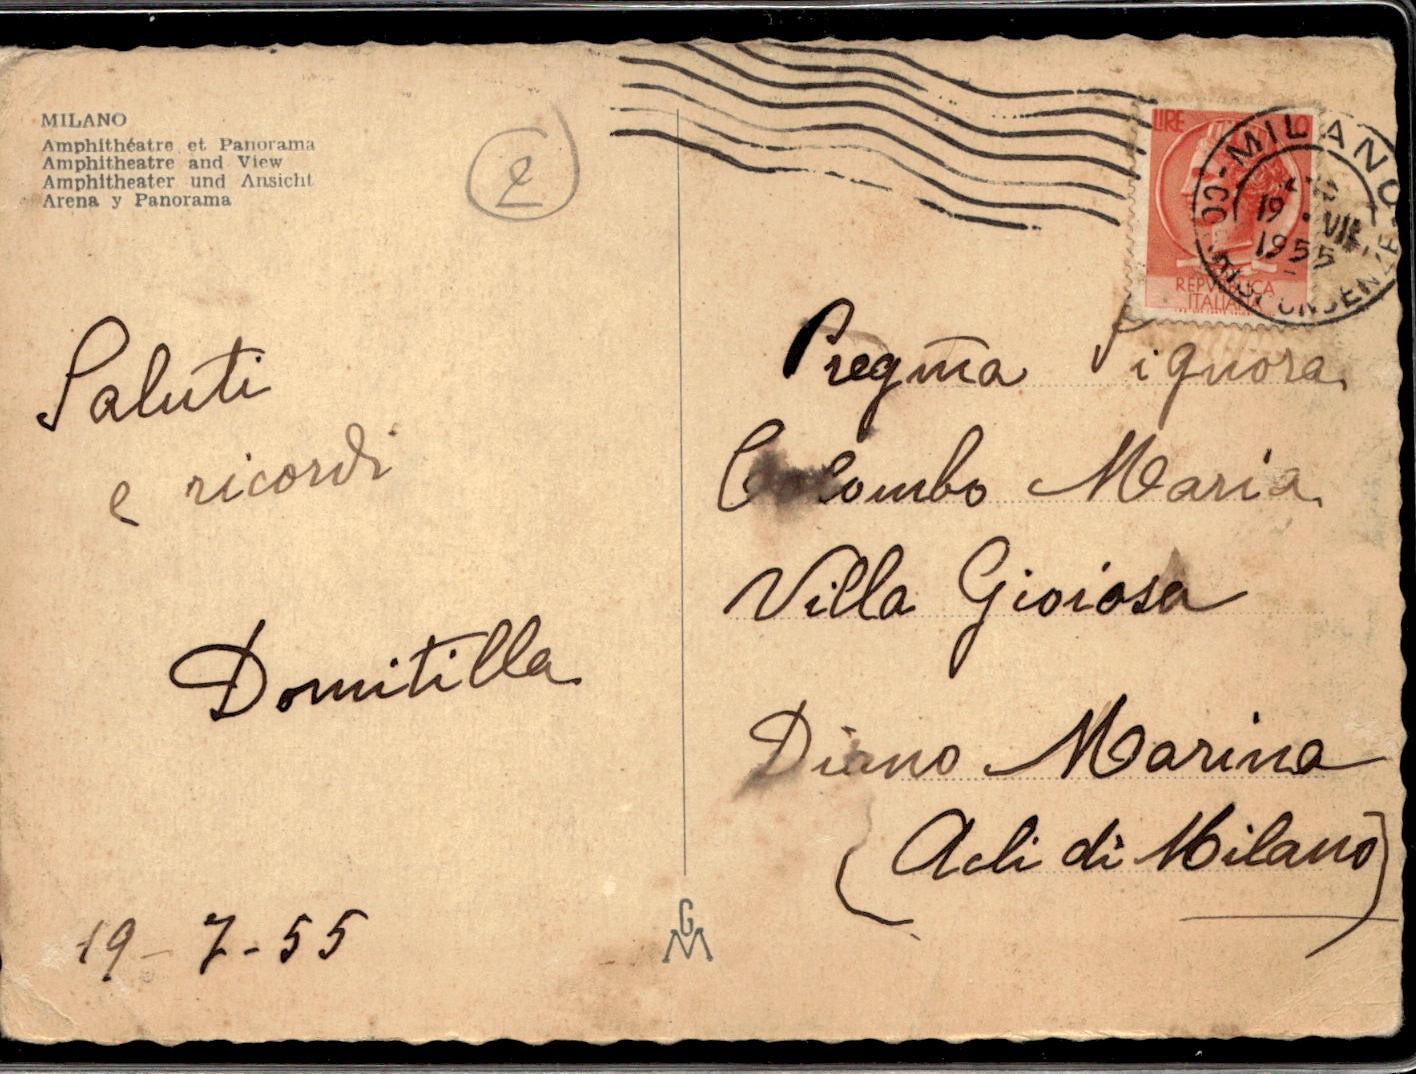 MILANO
Amphithéatre et Panorama
Amphitheatre and View
Amphitheater und Ansicht
Arena y Panorama
2
LIRE 10
REPVBBLICA
ITALIANA
MILANO
19 · VII
1955
CORRISPONDENZE
Saluti
e ricordi
Domitilla
19-7-55
Pregma Signora
Colombo Maria
Villa Gioiosa
Diano Marina
(Acli di Milano)
GM